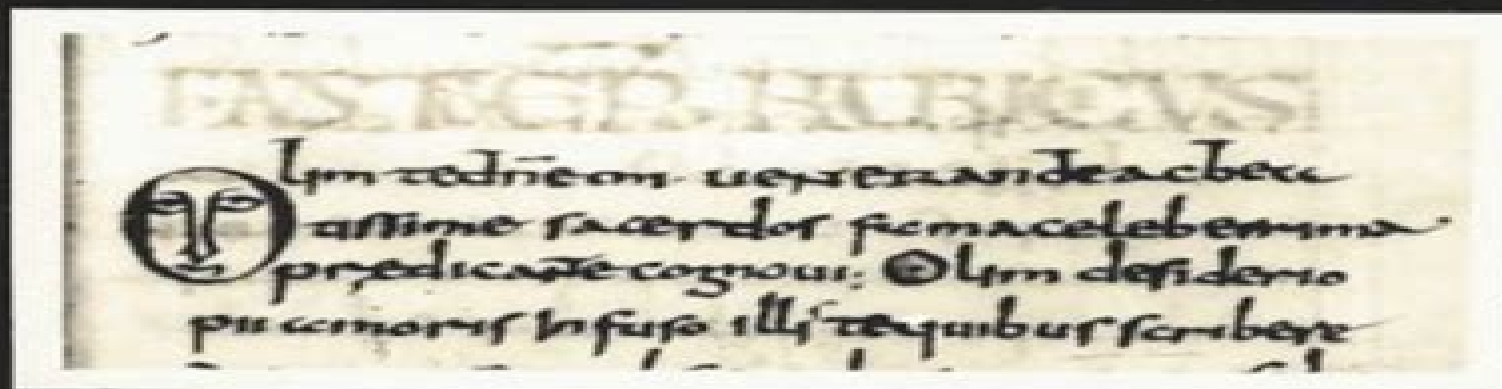 Olim te dn̄e mi uenerande ac bea
tissime sacerdos fama celeberrima
prędicante cognoui; Olim desiderio
pii amoris Infuso illi quibus scribere